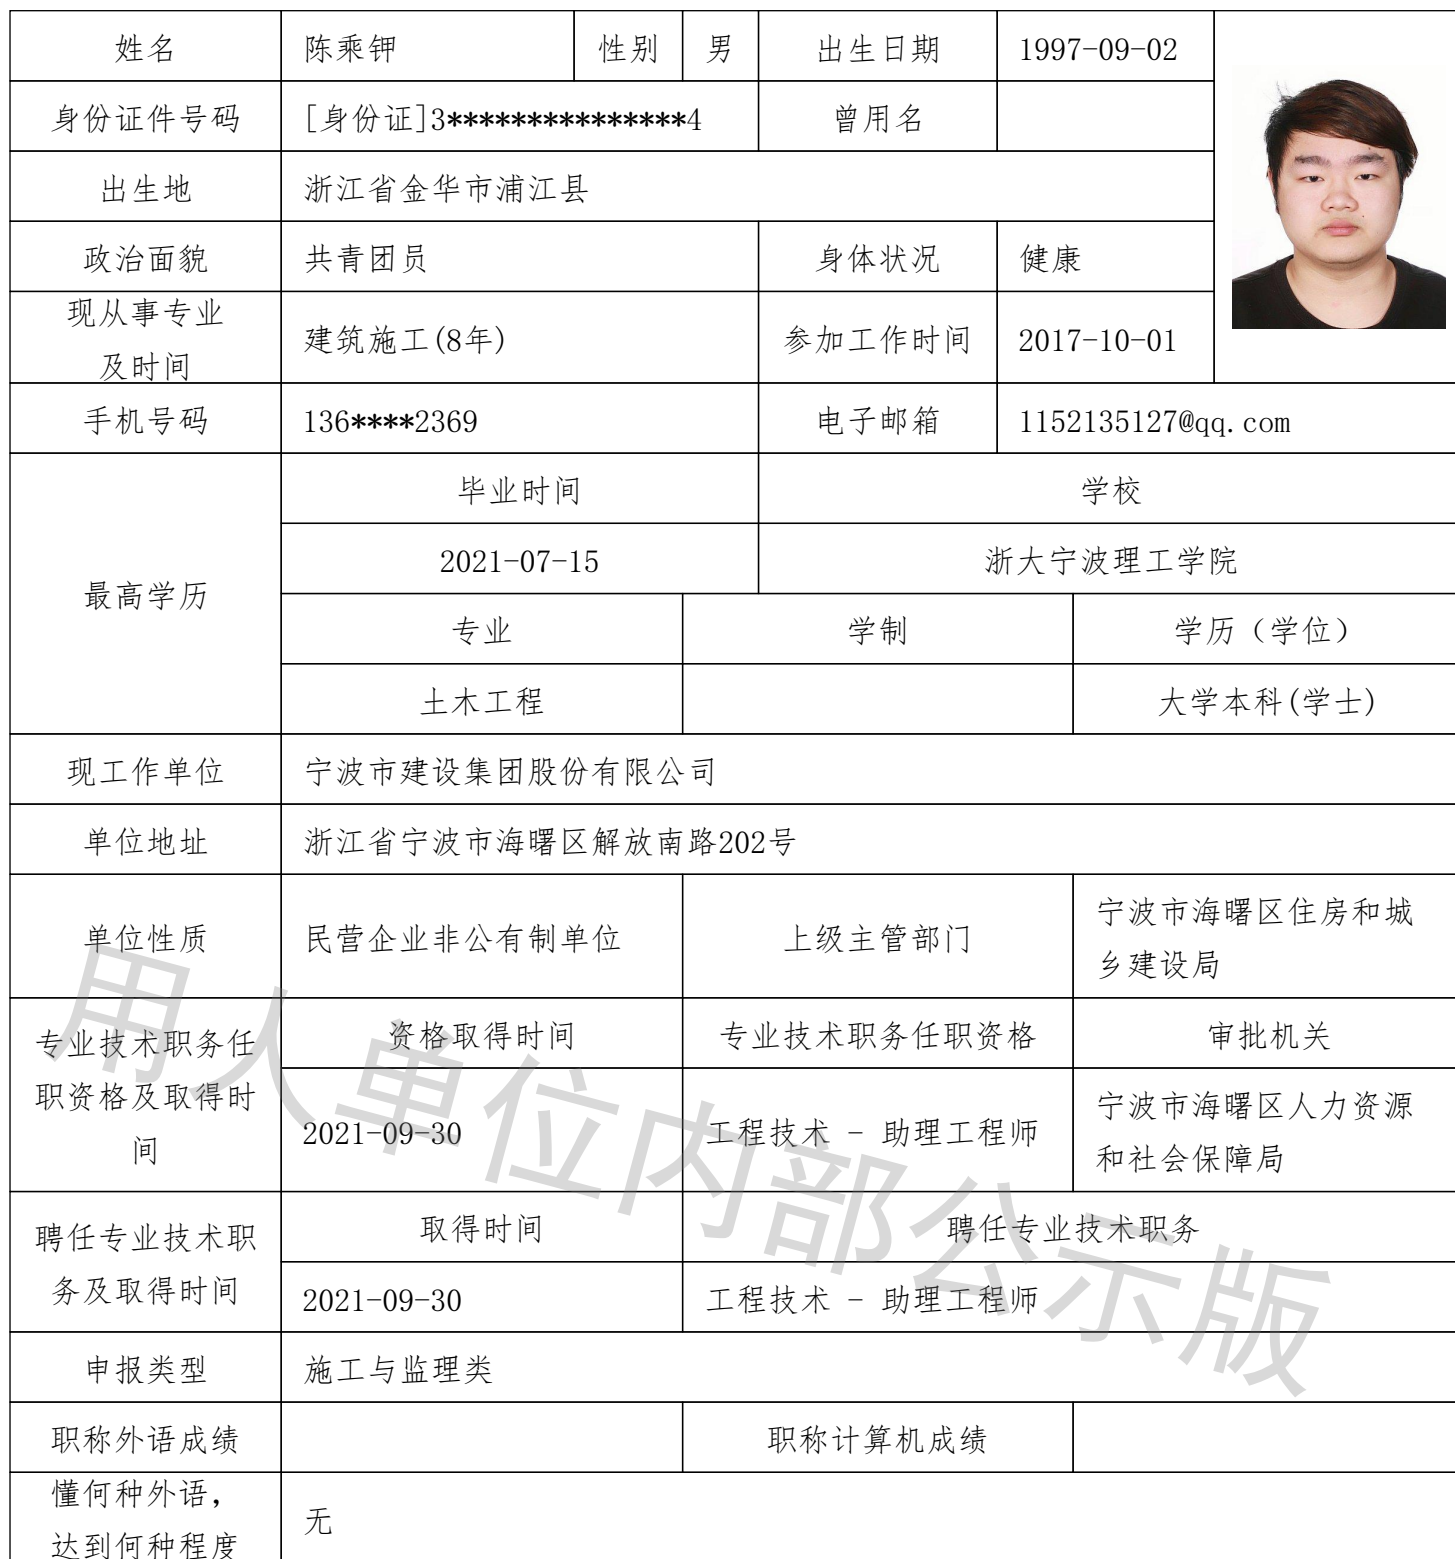 姓名 陈乘钾 性别 男 出生日期 1997-09-02
身份证件号码 [身份证]3***************4 曾用名
出生地 浙江省金华市浦江县
政治面貌 共青团员 身体状况 健康
现从事专业
及时间 建筑施工(8年) 参加工作时间 2017-10-01
手机号码 136****2369 电子邮箱 1152135127@qq.com
最高学历
毕业时间 学校
2021-07-15 浙大宁波理工学院
专业 学制 学历（学位）
土木工程 大学本科(学士)
现工作单位 宁波市建设集团股份有限公司
单位地址 浙江省宁波市海曙区解放南路202号
单位性质 民营企业非公有制单位 上级主管部门 宁波市海曙区住房和城
乡建设局
专业技术职务任
职资格及取得时
间
资格取得时间 专业技术职务任职资格 审批机关
2021-09-30 工程技术 - 助理工程师 宁波市海曙区人力资源
和社会保障局
聘任专业技术职
务及取得时间
取得时间 聘任专业技术职务
2021-09-30 工程技术 - 助理工程师
申报类型 施工与监理类
职称外语成绩 职称计算机成绩
懂何种外语，
达到何种程度 无
用人单位内部公示版